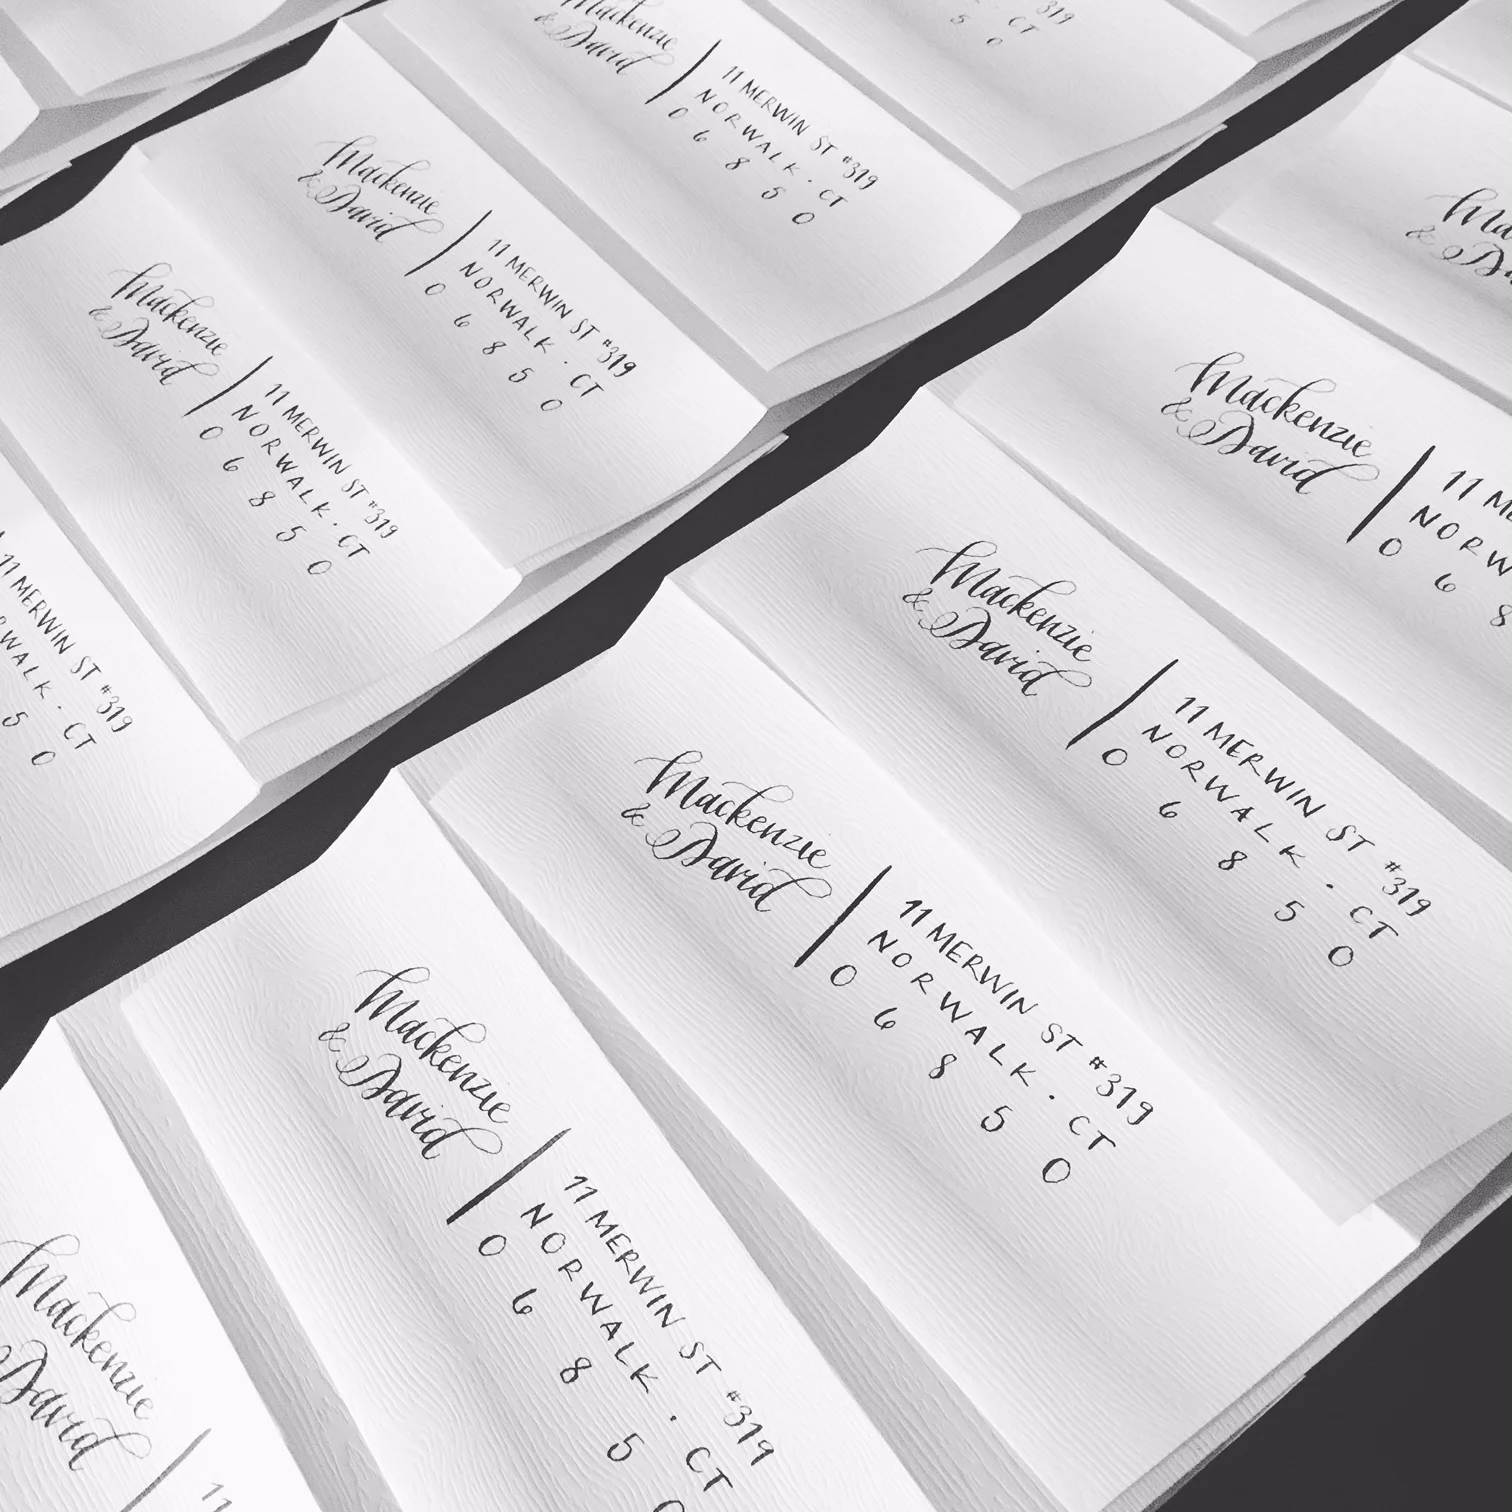 Mackenzie
& David
11 MERWIN ST #319
NORWALK · CT
0 6 8 5 0
Mackenzie
& David
11 MERWIN ST #319
NORWALK · CT
0 6 8 5 0
Mackenzie
& David
11 MERWIN ST #319
NORWALK · CT
0 6 8 5 0
11 MERWIN ST #319
CT
5 0
Mackenzie
& David
11
NORW
0 6 8
Mackenzie
& David
11 MERWIN ST #319
NORWALK · CT
0 6 8 5 0
Mackenzie
& David
11 MERWIN ST #319
NORWALK · CT
0 6 8 5 0
Mackenzie
& David
11 MERWIN ST #319
NORWALK · CT
0 6 8 5
Mackenzie
David
11